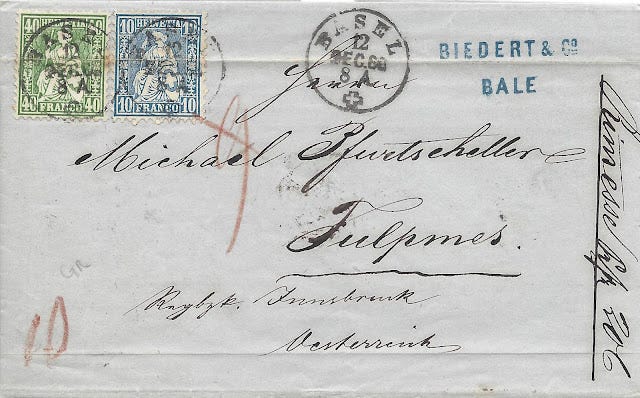 40 HELVETIA 40
40 FRANCO 40
10 HELVETIA 10
10 FRANCO 10
BASEL
12
DEC. 68
8 A
BIEDERT & Co
BALE
Herrn
Michael Pfurtscheller
Fulpmes.
Regbzk. Innsbruck
Oesterreich
GR
10